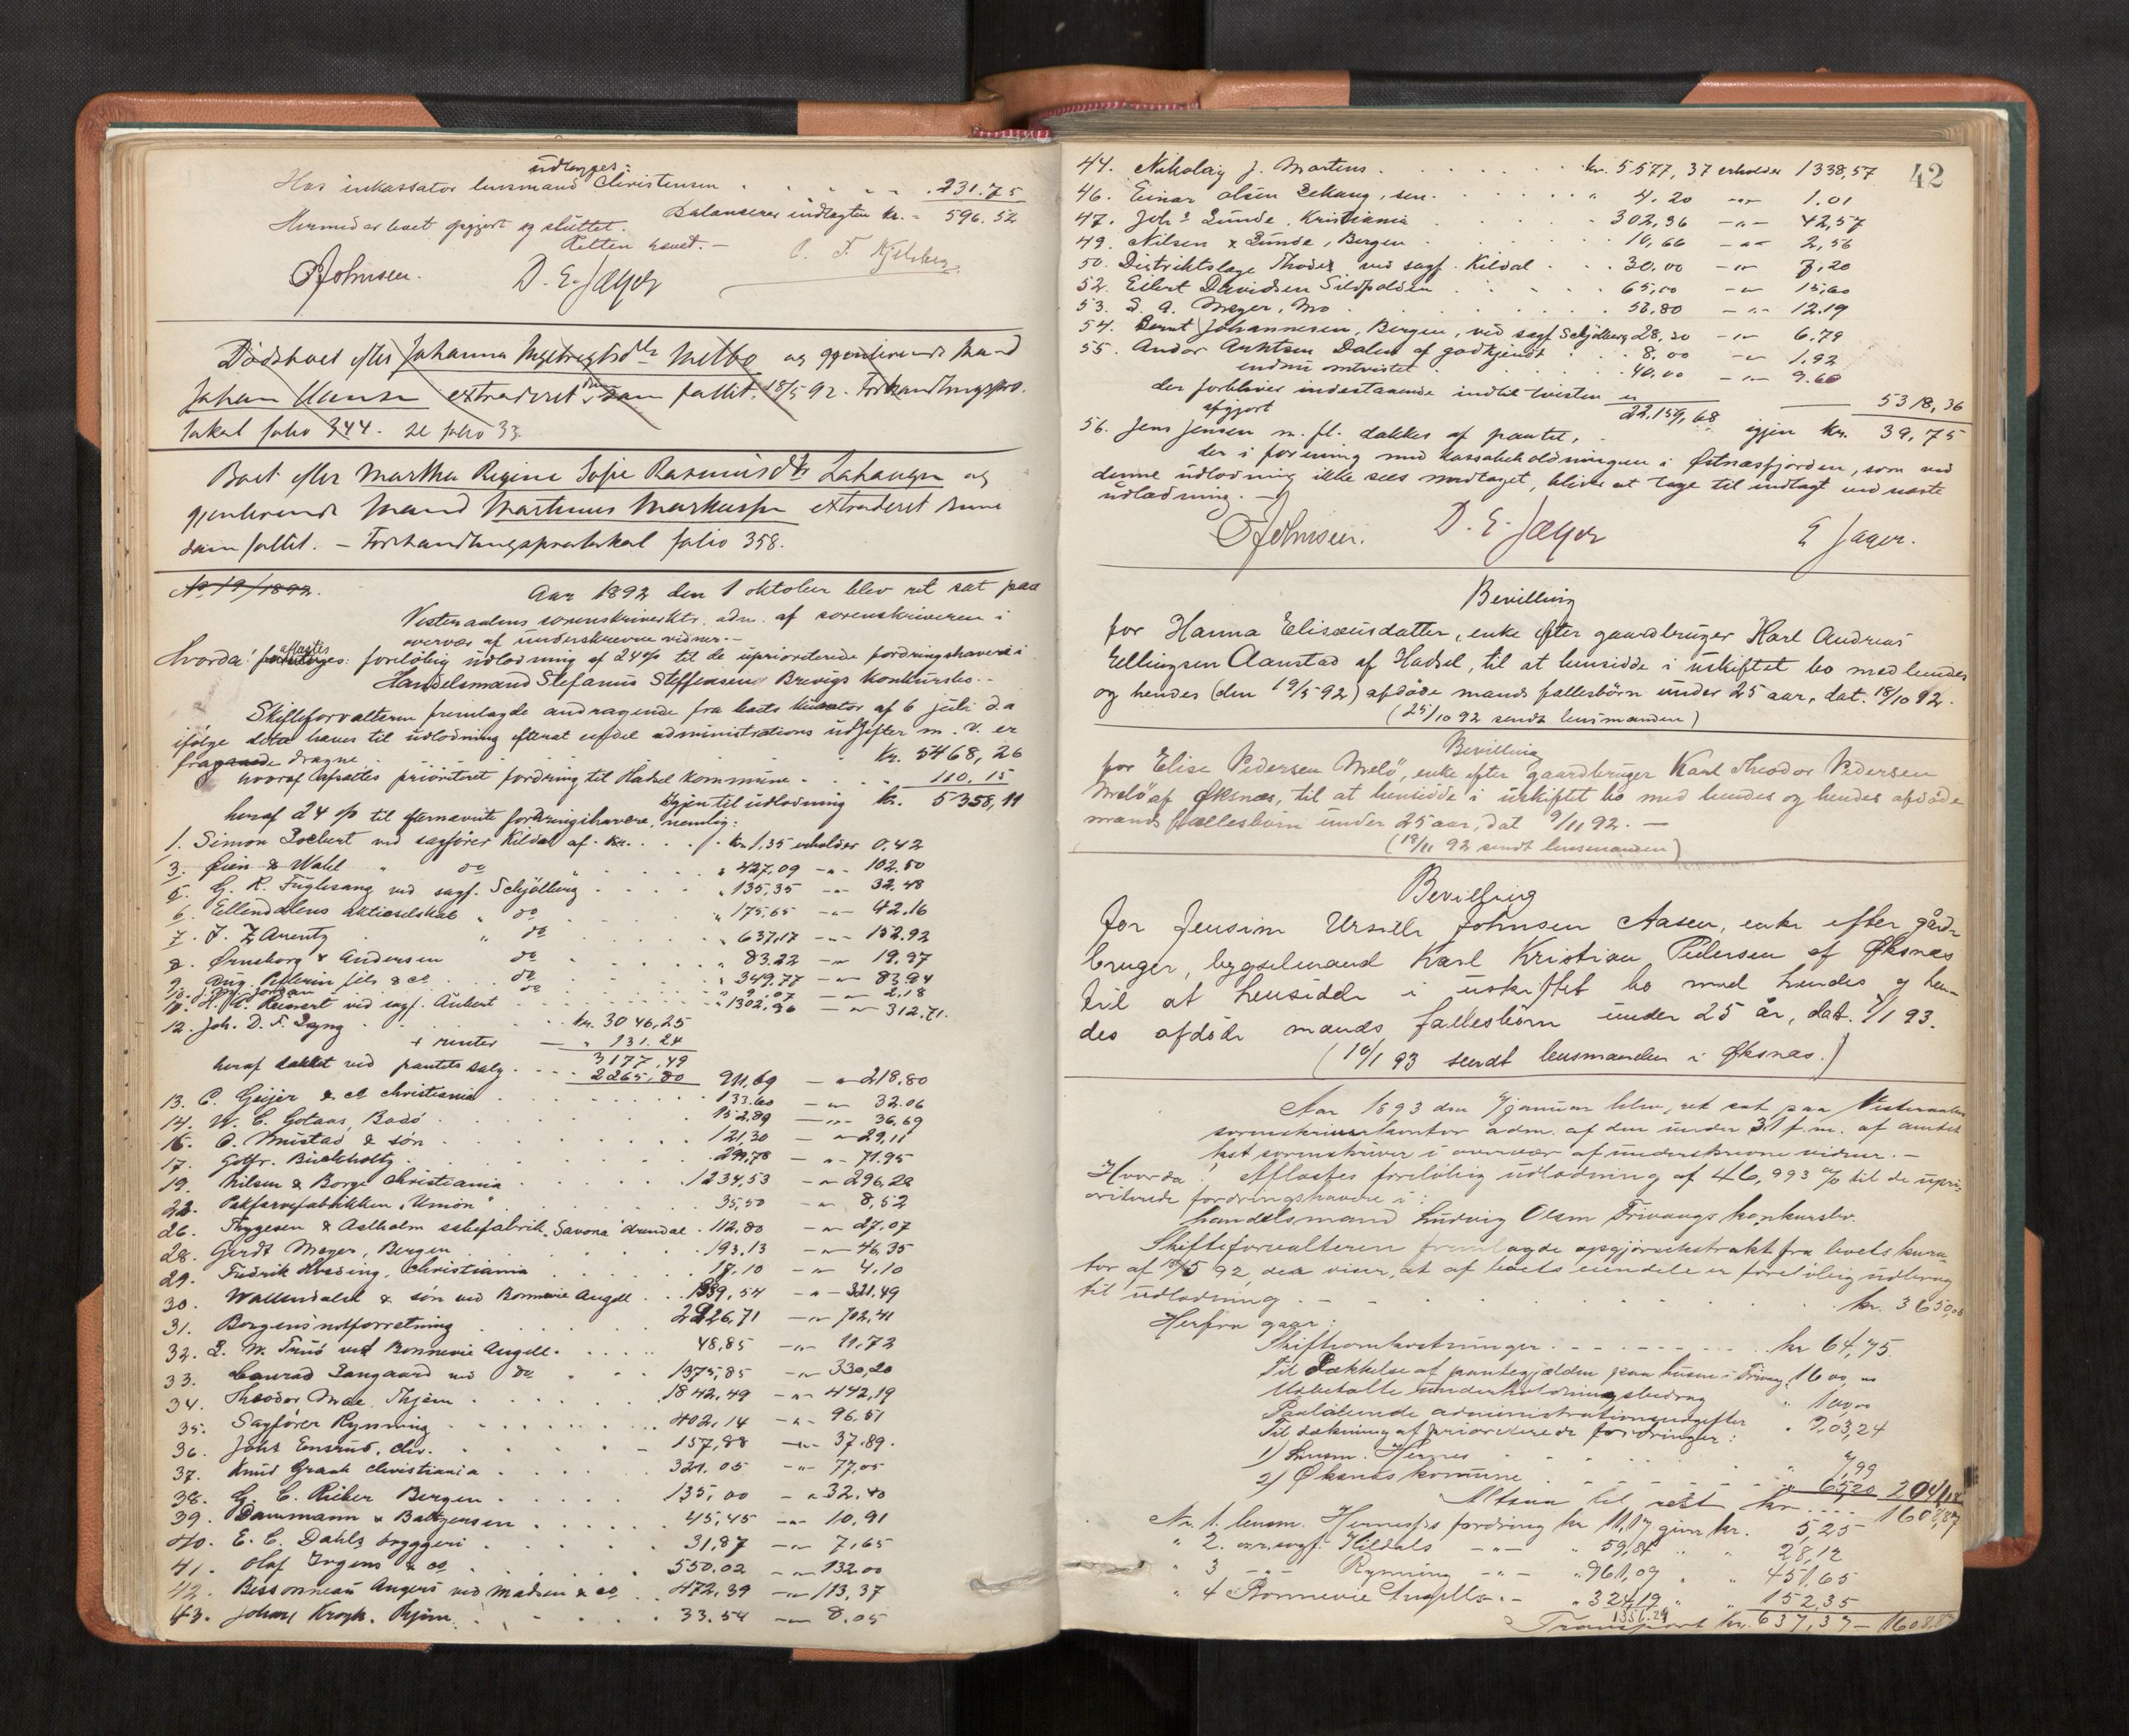 udlægges:
Hos inkassator lensmand Christensen . . . . . 231.75
Balancerer indtægten kr. - 596.52
Hermed er boet opgjort og sluttet.
Retten hævet. -
OJohnsen. D. E. Jæger
Dødsboet efter Johanna Ingebrigtsdtr Melbo og gjenlevende mand
Johan Hansen extraderet den som fallit. 18/5 92. Forhandlingspro-
tokol folio 344. se folio 33.
Boet efter Martha Regine Sofie Rasmusdtr og
gjenlevende mand Martinus Markussen extraderet denne
som fallit. - Forhandlingsprotokol folio 358.
No 19/1892.
Aar 1892 den 1 oktober blev ret sat paa
Vesteraalens sorenskriverktr. adm. af sorenskriveren i
overvær af underskrevne vidner. -
Hvorda: afluttes foreløbig udlodning af 24 % til de uprioriterede fordringshavere i
Handelsmand Stefanus Steffensens Brevigs konkursbo. -
Skifteforvalteren fremlagde andragende fra boets kurator af 6 juli d.a
ifølge dette haves til udlodning efterat endel administrations udgifter m. v. er
fragaaede dragne . . . kr. 5468,26
hvoraf afsattes prioriteret fordring til Hadsel kommune . . . 110.15
Igjen til udlodning kr. 5358,11
heraf 24 % til efternævnte fordringshavere, nemlig:
1. Simon ved sagfører Kildal af kr. . . kr 1,35 erholder 0,42
3. Øien & Wahl " do . . . " 427,09 -"- 102.50
5. G. K. Fuglesang ved sagf. Schjølberg . . . " 135,35 -"- 32.48
6. Ellendalens aktieselskab " do . . . " 175,65 -"- 42.16
7. J. Z Arentz " do . . . " 637,17 -"- 152.92
8. Ørneborg & Andersen do . . . " 83.22 -"- 19.97
9. Aug. Pellerin fils & co do . . . " 349.77 -"- 83.94
10. Jordan do " 9,07 -"- 2,18
11. H. C. Reinert ved sagf. Aubert . . . " 1302,96 -"- 312.71.
12. Joh. D. F. . . . kr. 3046,25
+ renter — " 131.24
3177,49
heraf dækket ved pantets salg . . . 2265,80 911,69 -"- 218,80
13. C. Geijer & co Christiania . . . 133.60 -"- 32.06
14. W. C. Gotaas, Bodø . . . 152.89 -"- 36,69
16. O. Mustad & søn . . . 121,30 -"- 29,11
17. Gotfr. Buchholtz . . . 299,78 -"- 71.95
19. Nilsen & Borge Christiania . . . 1234,53 -"- 296,28
22. Pakfarvefabrikken "Union" . . . 35,50 -"- 8,52
26. Thygesen & Astholm sæbefabrik "Savona" Arendal . 112,80 -"- 27.07
28. Gerdt Meyer, Bergen . . . 193,13 -"- 46,35
29. Fredrik, Christiania . . . 17.10 -"- 4.10
30. Wallendahl & søn ved Bonnevie Angell . . . 1339,54 -"- 321,49
31. Bergens notforretning . . . 2926,71 -"- 702,41
32. L. W. ved Bonnevie Angell . . . 48,85 -"- 11.72
33. Conrad Langaard ved do . . . 1375,85 -"- 330,20
34. Theodor Moe, Thjem . . . 1842,49 -"- 442,19
35. Sagfører Rynning . . . 402,14 -"- 96,51
36. Johs Ensrud, Chr. . . . 157,88 -"- 37.89.
37. Knud Graah Christiania . . . 321.05 -"- 77,05
38. G. C. Rieber Bergen . . . 135,00 -"- 32.40
39. Dammann & Baltzersen . . . 45,45 -"- 10,91
40. E. C. Dahls bryggeri . . . 31,87 -"- 7,65
41. Olaf Irgens & co . . . 550,02 -"- 132.00
42. Bessonneau Angers ved Madsen & co . 472,39 -"- 113,37
43. Johan Krogh, Thjem . . . 33.54 -"- 8.05
42
44. Nikolay J. Martens . . . kr. 5577,37 erholder 1338,57
46. Einar Olsen, sen. . . . " 4.20 -"- 1.01
47. Johs Lunde, Kristiania . . . 302,36 -"- 42,57
49. Nilsen & Lunde, Bergen . . . 10,66 -"- 2,56
50. Distriktslæge Thodes ved sagf. Kildal . . . 30.00 -"- 7.20
52. Eilert Davidsen Sildpolden . . . 65,00 -"- 15,60
53. S. A. Meyer, Mo . . . 50,80 -"- 12.19
54. Bernt Johannesen, Bergen, ved sagf Schjølberg 28,30 -"- 6.79
55. Andor Arntsen Dalen af godkjendt . . . 8.00 -"- 1.92
endnu omtvistet . . . 40.00 -"- 9.60
der forbliver indestaaende indtil tvisten er
afgjort 22,159,68 —— 5318,36
igjen kr. 39,75
56. Jens Jensen m. fl. dækkes af pantet,
der i forening med kassabeholdningen i Østnæsfjorden, som ved
denne udlodning ikke sees medtaget, bliver at tage til indtægt ved næste
udlodning. -
OJohnsen. D. E. Jæger E Jager.
Bevilling
for Hanna Elisæusdatter, enke efter gaardbruger Karl Andreas
Ellingsen Aanstad af Hadsel, til at hensidde i uskiftet bo med hendes
og hendes (den 19/5 92) afdøde mands fællesbørn under 25 aar, dat. 18/10 92.
(25/10 92 sendt lensmanden)
Bevilling
for Elise Pedersen Melø, enke efter gaardbruger Karl Theodor Pedersen
Melø af Øksnæs, til at hensidde i uskiftet bo med hendes og hendes afdøde
mands fællesbørn under 25 aar, dat 9/11 92. —
(18/11 92 sendt lensmanden)
Bevilling
for Jensine Ursille Johnsen Aasen, enke efter gård-
bruger, bygselmand Karl Kristian Pedersen af Øksnæs
til at hensidde i uskiftet bo med hendes og hen-
des afdøde mands fællesbørn under 25 år, dat. 9/1 93.
(10/1 93 sendt lensmanden i Øksnæs.)
Aar 1893 den 7 januar blev ret sat paa Vesteraalens
sorenskriverkontor adm. af den under 31 f. m. af amtet
kst sorenskriver i overvær af underskrevne vidner. -
Hvorda: Aflastes foreløbig udlodning af 46,993 % til de upri-
oriterede fordringshavere i:
handelsmand Ludvig Olsen Trivaags konkursbo.
Skifteforvalteren fremlagde opgjørsekstrakt fra boets kura-
tor af 15/5 92, der viser, at af boets eiendele er foreløbig udbragt
til udlodning . . . kr. 3650,05
Herfra gaar:
Skifteomkostninger . . . kr 64,75
Til Dækkelse af pantegjælden paa husene i Trivaag " 1600,00
Udbetalte underholdningsbidrag " 100,00
Paaløbende administrationsudgifter " 203,24
Til dækning af prioriterede fordringer:
1) Lensm. Hernes . . . " 7,99
2) Øksnæs kommune . . . " 65,20 2041,18
Altsaa til rest kr . . . 1608,87
Nr. 1. lensm. Hernes's fordring kr 11,17 giver kr. 5,25
" 2. o.r.sagf. Kildals -"- " 59,84 " " 28,12
" 3 -"- Rynning -"- " 961,09 " " 451,65
" 4 Bonnevie Angells -"- " 324,19 " " 152,35
1356.29
Transport kr. 637,37 — 1608,87